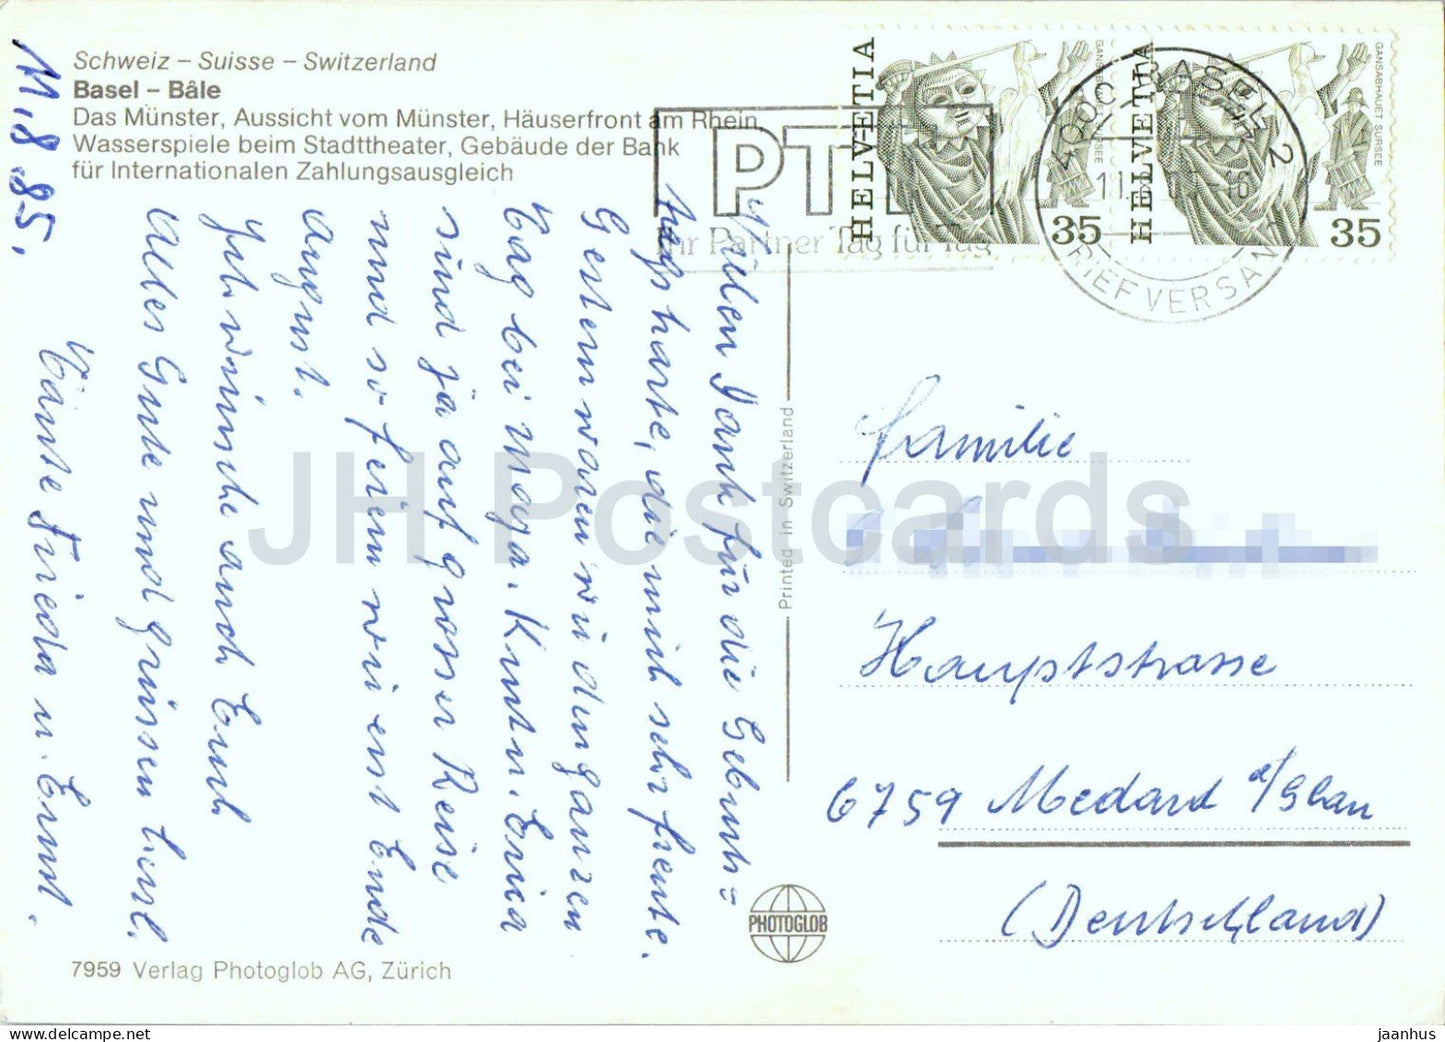 Schweiz – Suisse – Switzerland
Basel – Bâle
Das Münster, Aussicht vom Münster, Häuserfront am Rhein
Wasserspiele beim Stadttheater, Gebäude der Bank
für Internationalen Zahlungsausgleich
11.8.85.
Vielen Dank für die Geburts=
tagskarte, die mich sehr freute.
Gestern waren wir den ganzen
Tag bei Maya. Kurt u. Erica
sind ja auf grosser Reise
und so feiern wir erst Ende
August.
Ich wünsche auch Euch
alles Gute und grüssen Euch.
Tante Frieda u. Ernst.
7959 Verlag Photoglob AG, Zürich
Printed in Switzerland
PHOTOGLOB
PTT
Ihr Partner Tag für Tag
HELVETIA
35
GANSABHAUET SURSEE
HELVETIA
35
GANSABHAUET SURSEE
4000 BASEL 2
BRIEFVERSAND
Familie
Hauptstrasse
6759 Medard a/Glan
(Deutschland)
JH Postcards
jaanhus